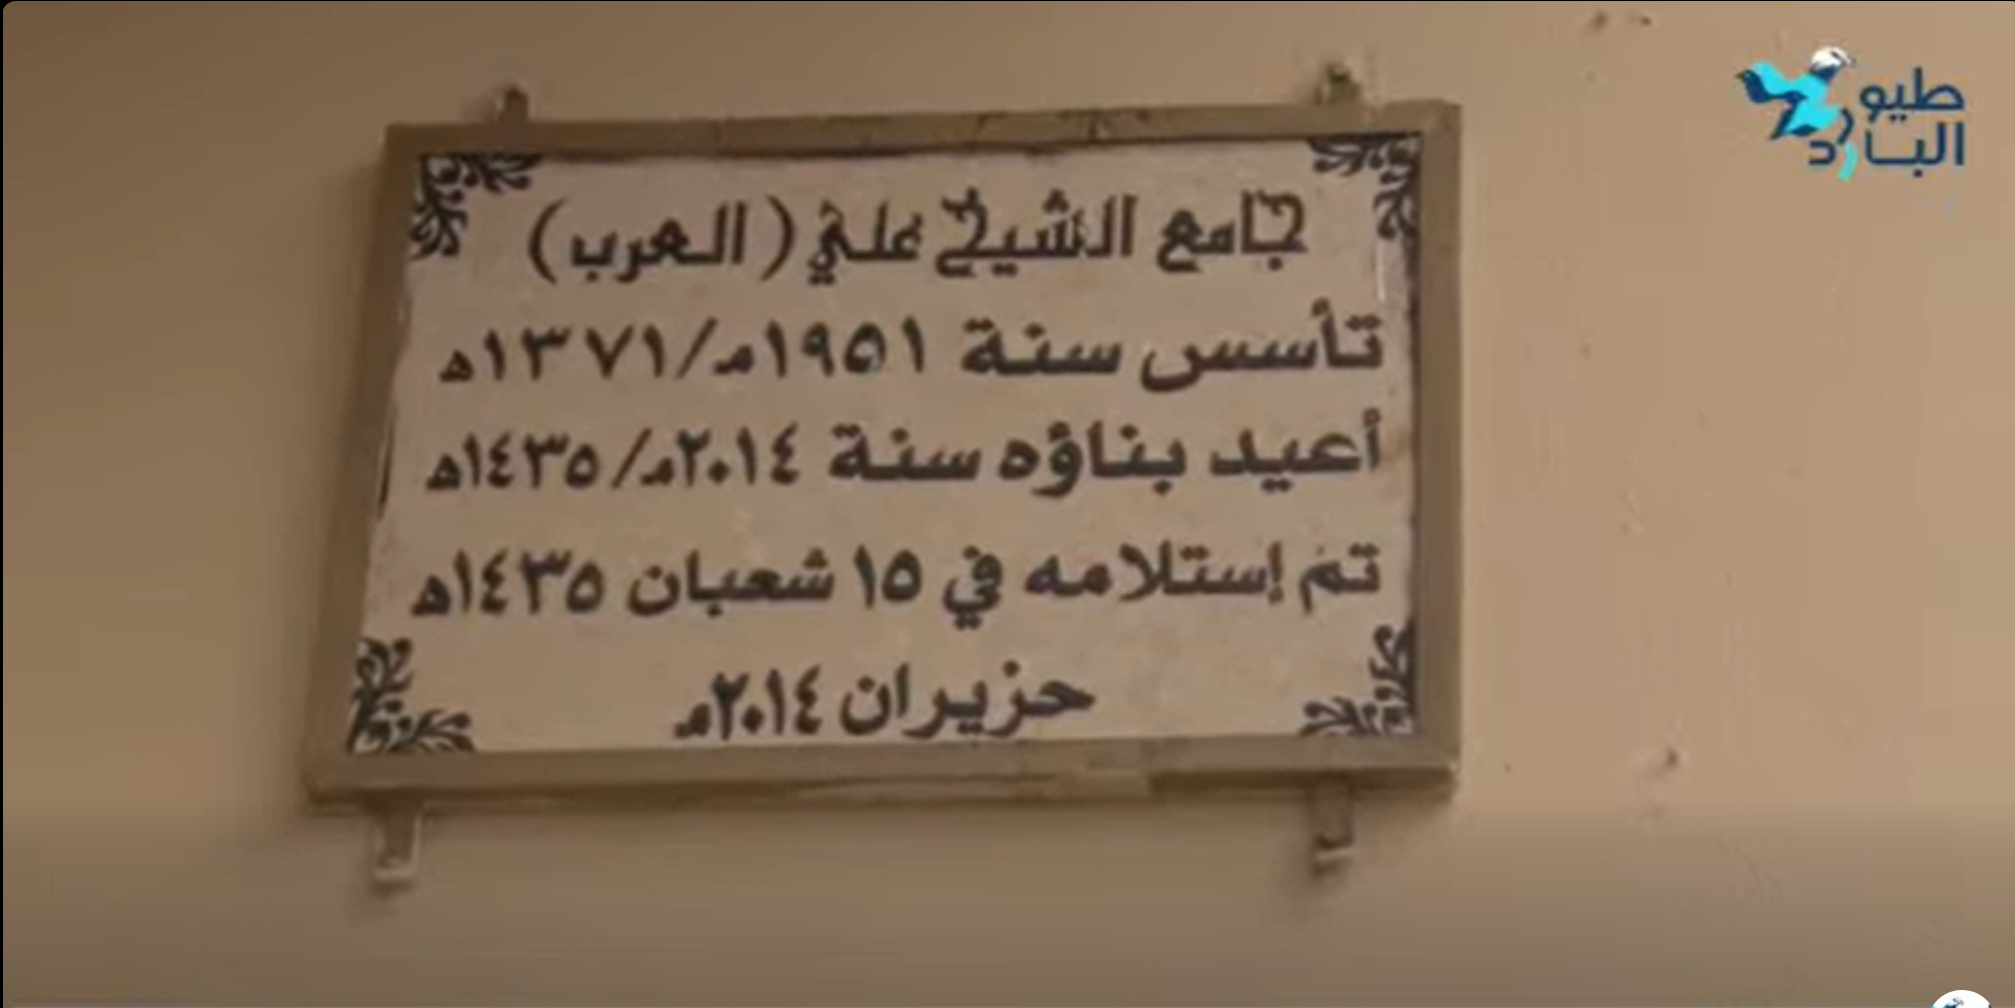 جامع الشيخ علي (العرب)
تأسس سنة ١٩٥١م/١٣٧١ه
أعيد بناؤه سنة ٢٠١٤م/١٤٣٥ه
تم إستلامه في ١٥ شعبان ١٤٣٥ه
حزيران ٢٠١٤م
طيور
البارد